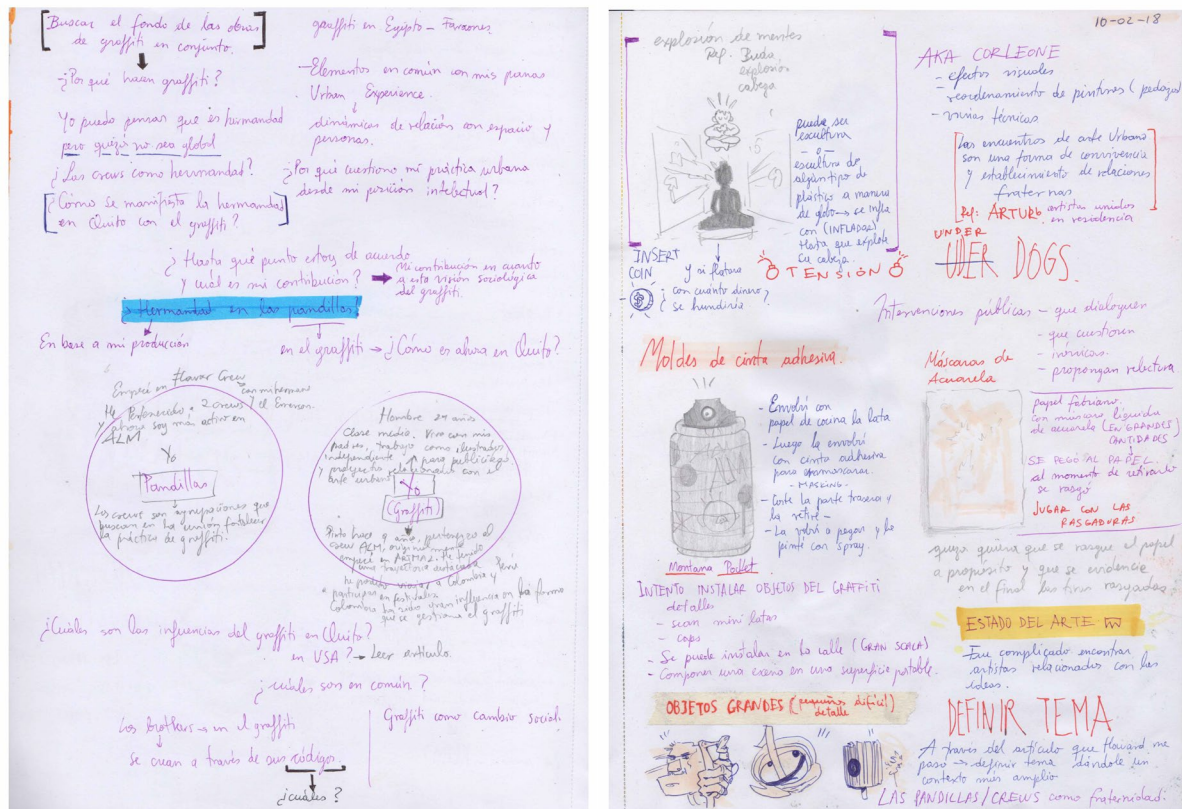 Buscar el fondo de las obras
de graffiti en conjunto.
¿Por qué hacen graffiti?
Yo puedo pensar que es hermandad
pero quizá no sea global
¿Las crews como hermandad?
¿Cómo se manifiesta la hermandad
en Quito con el graffiti?
graffiti en Egipto - Faraones.
- Elementos en común con mis panas
Urban Experience.
dinámicas de relación con espacio y
personas.
¿Por qué cuestiono mi práctica urbana
desde mi posición intelectual?
¿Hasta qué punto estoy de acuerdo
y cuál es mi contribución?
Mi contribución en cuanto
a esta visión sociológica
del graffiti.
¿Hermandad en las pandillas?
En base a mi producción
en el graffiti → ¿Cómo es ahora en Quito?
Empecé en Flavar Crew
con mi hermano
y el Errerson.
He Pertenecido a 2 crews
y ahora soy más activo en
ALM
Yo
Pandillas
Los crews son agrupaciones que
buscan en la unión fortalecer
la práctica de graffiti.
Hombre 29 años
Clase media, Vivo con mis
padres, trabajo como ilustrador
independiente para publicidad
y proyectos relacionados con el
arte urbano
Yo
(Graffiti)
Pinto hace 9 años, pertenezco al
crew ALM,
empecé en
una trayectoria destacada
he podido viajar a Colombia y
participar en festivales
Colombia ha sido gran influencia en la forma
que se gestiona el graffiti
¿Cuáles son las influencias del graffiti en Quito?
en USA? → Leer artículo.
¿cuáles son en común?
Los brothers → en el graffiti
se crean a través de sus códigos.
¿cuáles?
Graffiti como cambio social.
10-02-18
explosión de mentes
Ref. Buda
explosión
cabeza
puede ser
escultura
- o -
escultura de
algún tipo de
plástico a manera
de globo → se infla
con (INFLADOR)
Hasta que explote
su cabeza.
INSERT
COIN
y si flotara
¿con cuánto dinero?
se hundiría
TENSIÓN
AKA CORLEONE
- efectos visuales
reordenamiento de pinturas (pedazos)
- varias técnicas
Los encuentros de arte Urbano
son una forma de convivencia
y establecimiento de relaciones
fraternas
Ref: ARTURb artistas unidos
en residencia
UNDER
UDER DOGS.
Intervenciones públicas - que dialoguen
- que cuestionen
- irónicas.
- propongan relectura.
Moldes de cinta adhesiva.
- Envolví con
papel de cocina la lata
- Luego la envolví
con cinta adhesiva
para enmascarar.
- MASKING -
- Corte la parte trasera y
la retiré -
- La volví a pegar y la
pinté con spray.
Montana Pocket
Máscaras de
Acuarela
papel fabriano.
con máscara líquida
de acuarela (EN GRANDES)
CANTIDADES
SE PEGÓ AL PAPEL.
al momento de retirarlo
se rasgó
JUGAR CON LAS
RASGADURAS
quizá quiera que se rasgue el papel
a propósito y que se evidencie
en el final las tiras rasgadas
INTENTO INSTALAR OBJETOS DEL GRAFFITI
detalles
- sean mini latas
- caps
- Se puede instalar en la calle (GRAN SCALA)
- Componer una escena en una superficie portable.
ESTADO DEL ARTE
- Fue complicado encontrar
artistas relacionados con las
ideas.
OBJETOS GRANDES (pequeños difícil)
detalle
DEFINIR TEMA
A través del artículo que Howard me
pasó → definir tema dándole un
contexto más amplio
LAS PANDILLAS/CREWS como fraternidad.